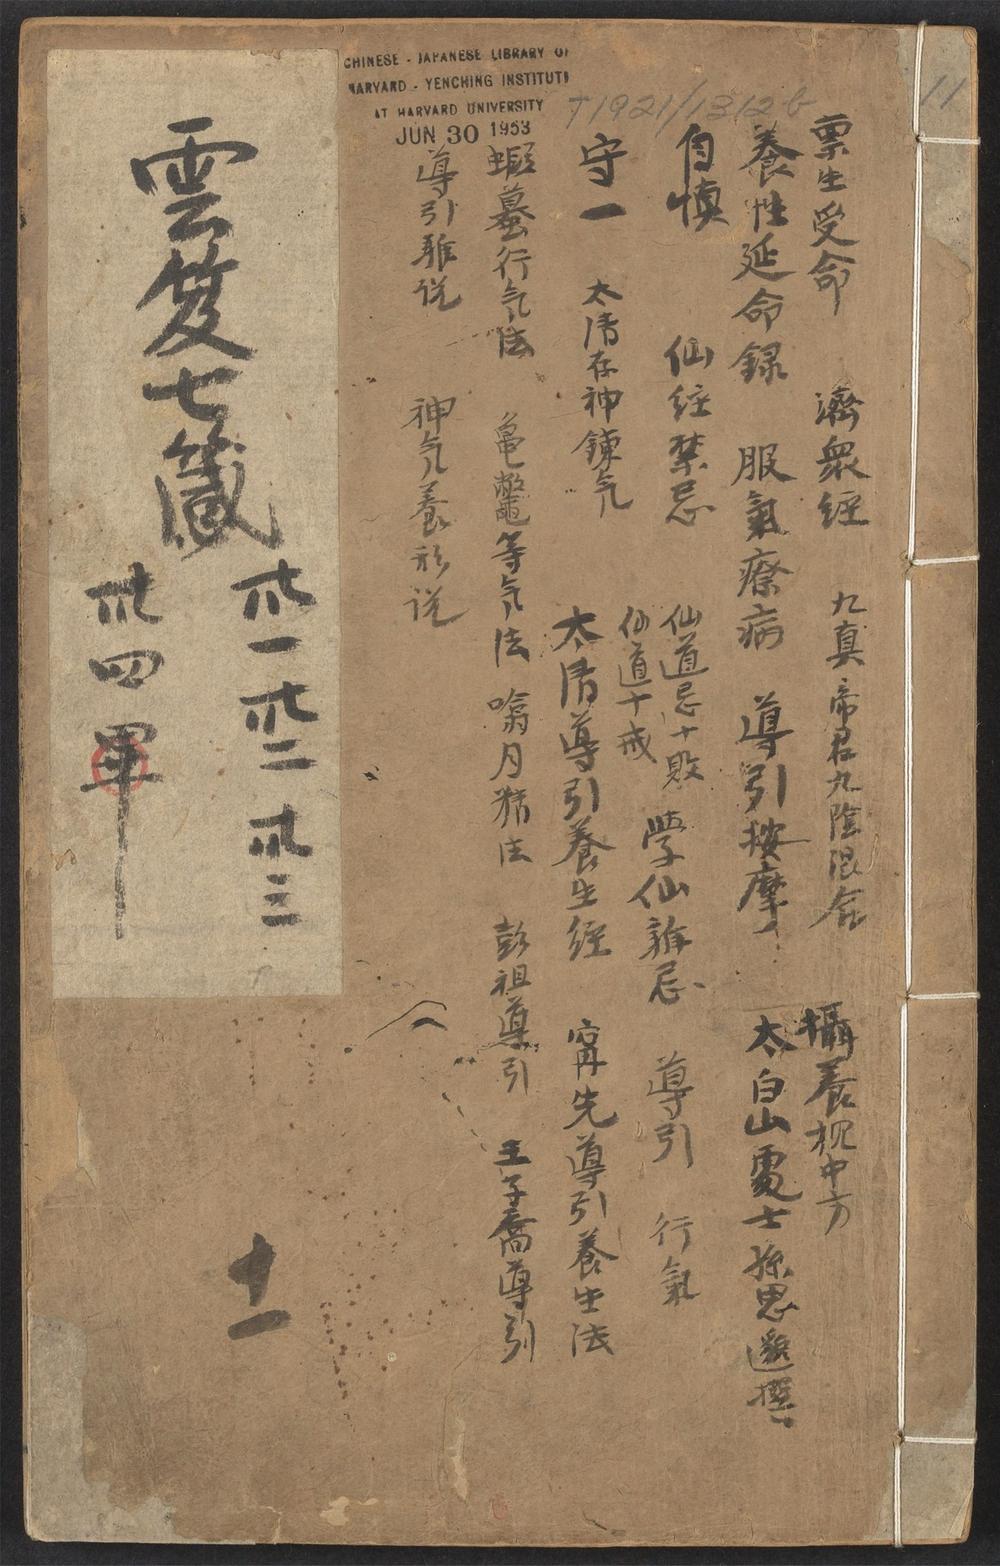 CHINESE - JAPANESE LIBRARY OF
HARVARD - YENCHING INSTITUTE
AT HARVARD UNIVERSITY
JUN 30 1953
T1921/1312b
11
稟生受命 濟衆經 九真帝君九陰混合 攝養枕中方
養性延命錄 服氣療病 導引按摩 太白山處士孫思邈撰
自慎 仙經禁忌 仙道忌十敗 仙道十戒 學仙雜忌 導引 行氣
守一 太清存神鍊气 太清導引養生經 甯先導引養生法
蝦蟇行气法 龜鼈等气法 噏月精法 彭祖導引 王子喬導引
導引雜说 神气養形说
雲笈七籤
卅一 卅二 卅三
卅四 畢
十一